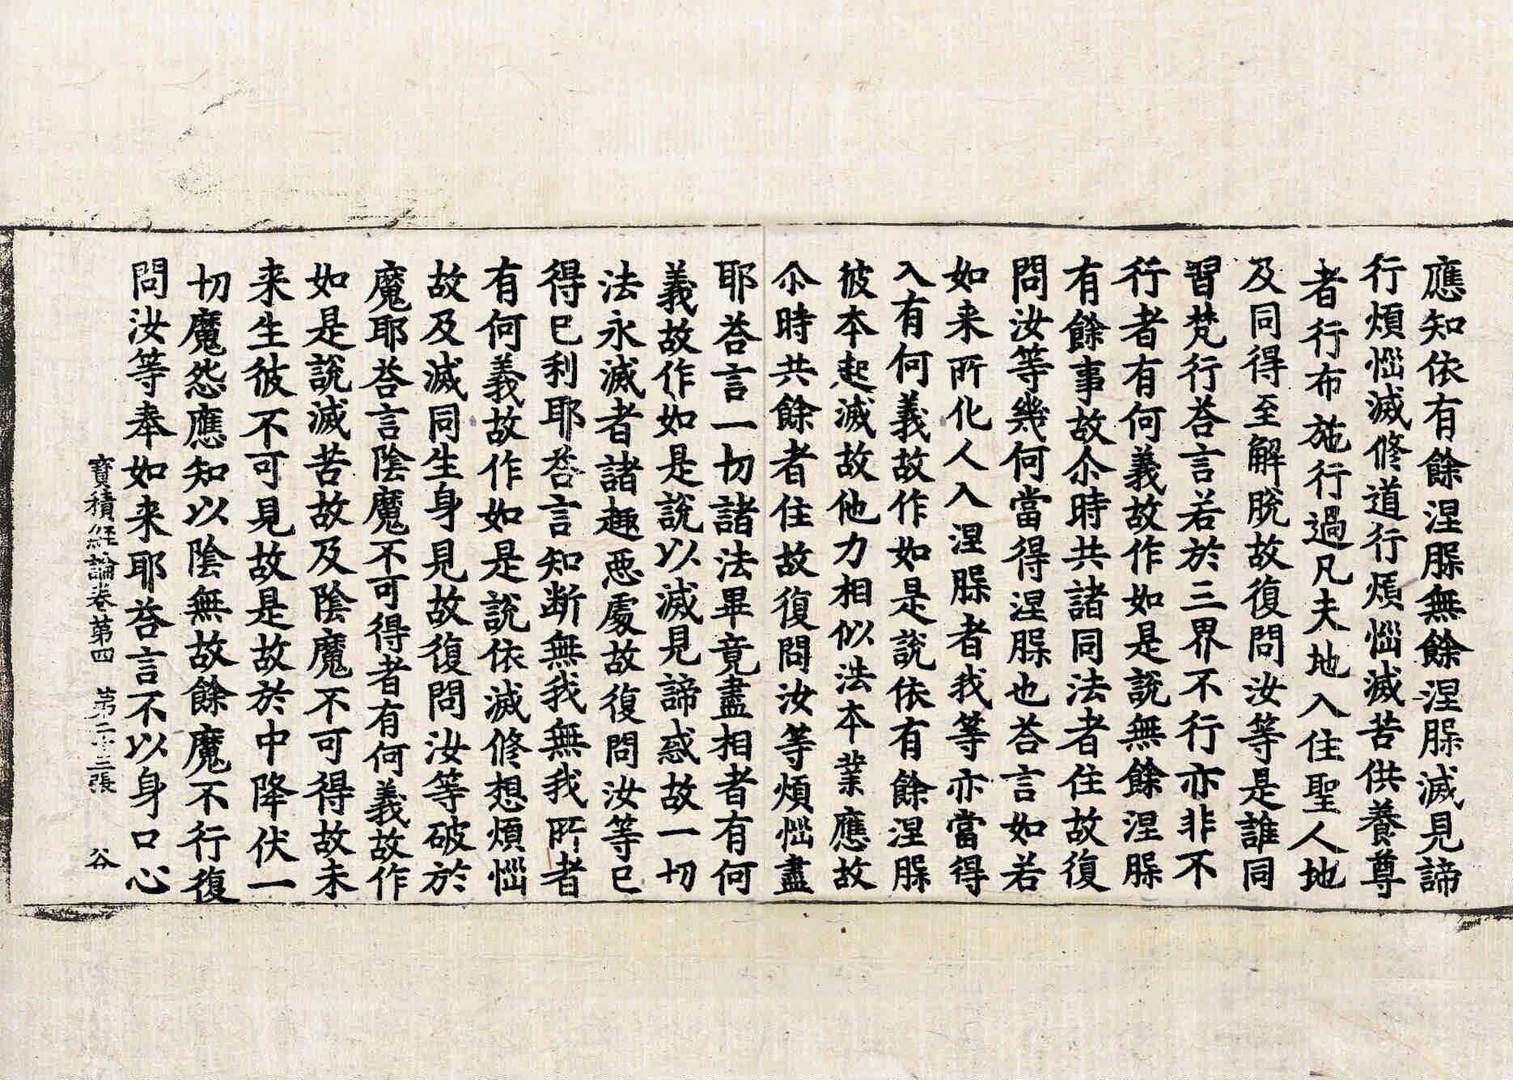 應知依有餘涅槃無餘涅槃滅見諦
行煩惱滅修道行煩惱滅苦供養尊
者行布施行過凡夫地入住聖人地
及同得至解脫故復問汝等是誰同
習梵行荅言若於三界不行亦非不
行者有何義故作如是説無餘涅槃
有餘事故尒時共諸同法者住故復
問汝等幾何當得涅槃也荅言如若
如来所化人入涅槃者我等亦當得
入有何義故作如是説依有餘涅槃
彼本起滅故他力相似法本業應故
尒時共餘者住故復問汝等煩惱盡
耶荅言一切諸法畢竟盡相者有何
義故作如是説以滅見諦惑故一切
法永滅者諸趣惡處故復問汝等已
得已利耶荅言知断無我無我所者
有何義故作如是説依滅修想煩惱
故及滅同生身見故復問汝等破於
魔耶荅言陰魔不可得者有何義故作
如是説滅苦故及陰魔不可得故未
来生彼不可見故是故於中降伏一
切魔怨應知以陰無故餘魔不行復
問汝等奉如来耶荅言不以身口心
寶積經論卷第四　第二十三張　谷